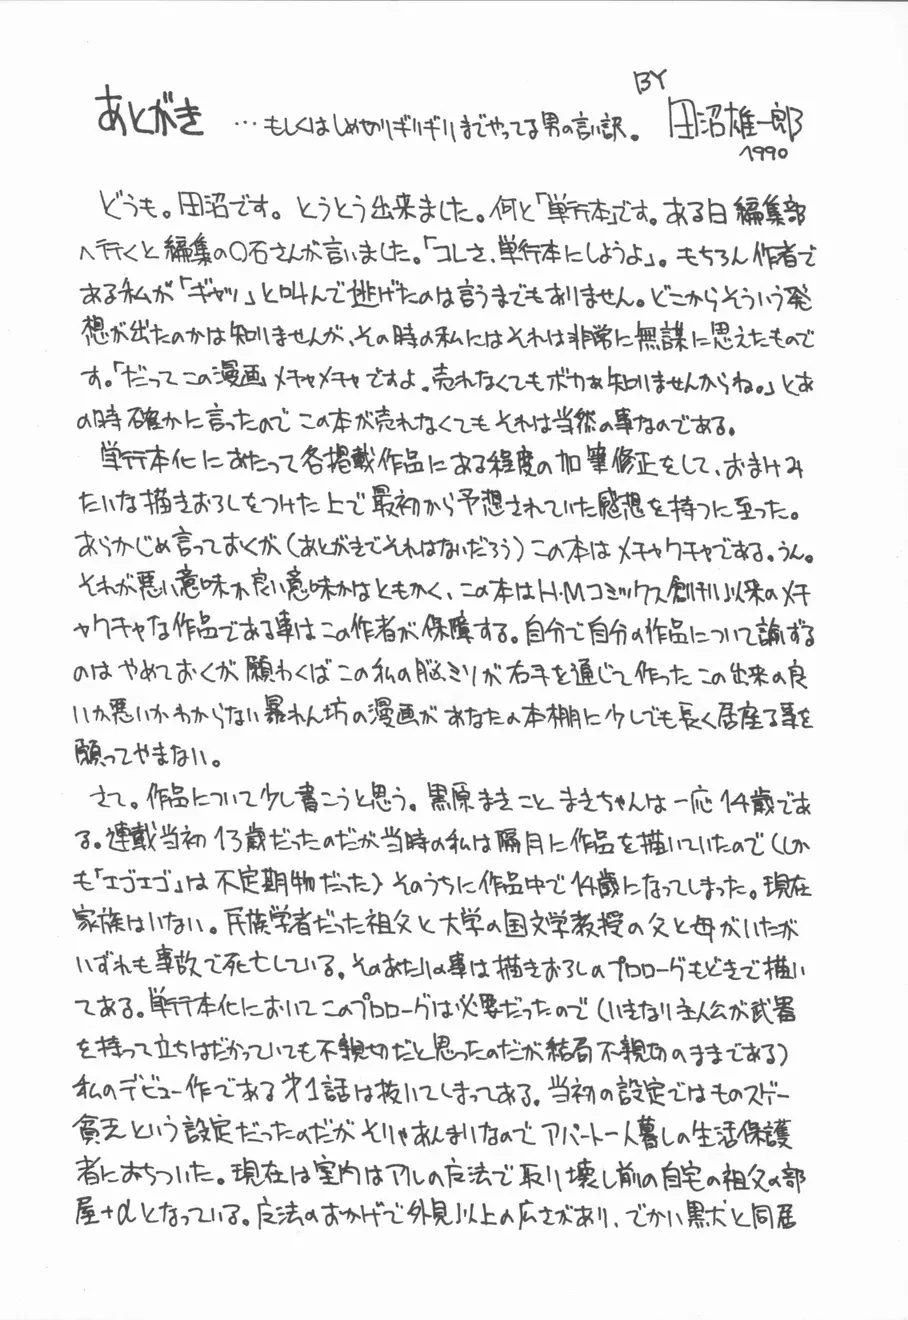 あとがき …もしくはしめ切りギリギリまでやってる男の言い訳。 BY 田沼雄一郎 1990
どうも。田沼です。とうとう出来ました。何と「単行本」です。ある日編集部
へ行くと編集の〇石さんが言いました。「コレさ、単行本にしようよ」。もちろん作者で
ある私が「ギャッ」と叫んで逃げたのは言うまでもありません。どこからそういう発
想が出たのかは知りませんが、その時の私にはそれは非常に無謀に思えたもので
す。「だってこの漫画メチャメチャですよ。売れなくてもボカぁ知りませんからね。」とあ
の時確かに言ったのでこの本が売れなくてもそれは当然の事なのである。
単行本化にあたって各掲載作品にある程度の加筆修正をして、おまけみ
たいな描きおろしをつけた上で最初から予想されていた感想を持つに至った。
あらかじめ言っておくが（あとがきでそれはないだろう）この本はメチャクチャである。うん。
それが悪い意味か良い意味かはともかく、この本はH・Mコミックス創刊以来のメチ
ャクチャな作品である事はこの作者が保障する。自分で自分の作品について論ずる
のはやめておくが願わくばこの私の脳ミソが右手を通じて作ったこの出来の良
いか悪いかわからない暴れん坊の漫画があなたの本棚に少しでも長く居座る事を
願ってやまない。
さて。作品について少し書こうと思う。黒原まきこことまきちゃんは一応14歳であ
る。連載当初13歳だったのだが当時の私は隔月に作品を描いていたので（しか
も「エゴエゴ」は不定期物だった）そのうちに作品中で14歳になってしまった。現在
家族はいない。民族学者だった祖父と大学の国文学教授の父と母がいたが
いずれも事故で死亡している。そのあたりの事は描きおろしのプロローグもどきで描い
てある。単行本化においてこのプロローグは必要だったので（いきなり主人公が武器
を持って立ちはだかっていても不親切だと思ったのだが結局不親切のままである）
私のデビュー作である才1話は抜いてしまってある。当初の設定ではものスゲー
貧乏という設定だったのだがそりゃあんまりなのでアパート一人暮しの生活保護
者におちついた。現在は室内はアルの方法で取り壊し前の自宅の祖父の部
屋+αとなっている。方法のおかげで外見以上の広さがあり、でかい黒犬と同居